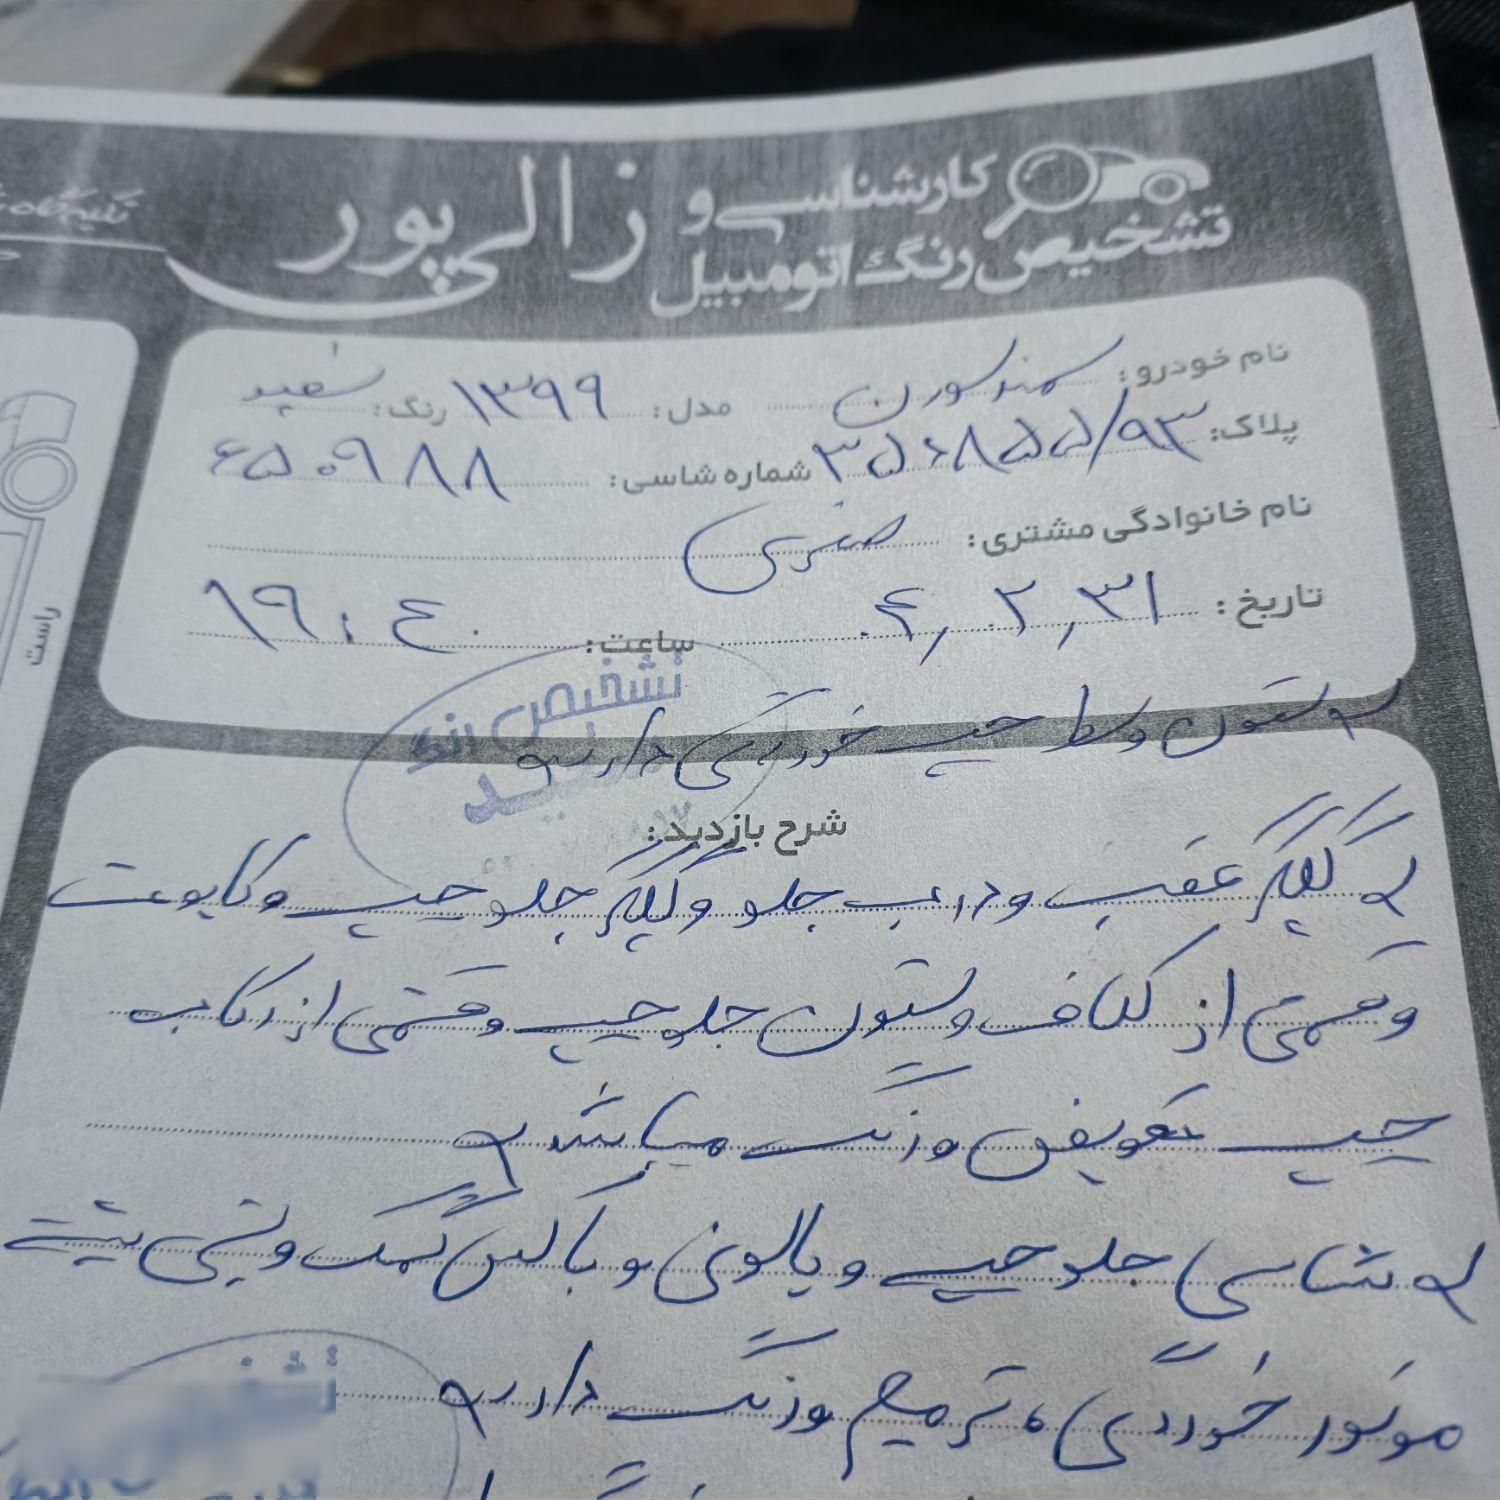 کارشناسی و
تشخیص رنگ اتومبیل
زالی پور
نام خودرو: سمند سورن مدل: ۱۳۹۹ رنگ: سفید
پلاک: شماره شاسی: ۶۵۰۹۸۸
نام خانوادگی مشتری:
تاریخ: ۰۴,۰۲,۳۱ ساعت: ۱۹:۴۰
ستون وسط چپ خوردگی دارد
تشخیص
شرح بازدید:
گلگیر عقب و درب جلو و گلگیر جلو چپ و کاپوت
و قسمتی از کلاف و ستون جلو چپ و قسمتی از رکاب
چپ تعویض و رنگ میباشد
شاسی جلو چپ و پالونی و بالس کمک و سینی پشت
موتور خوردگی، ترمیم و رنگ دارد
راست